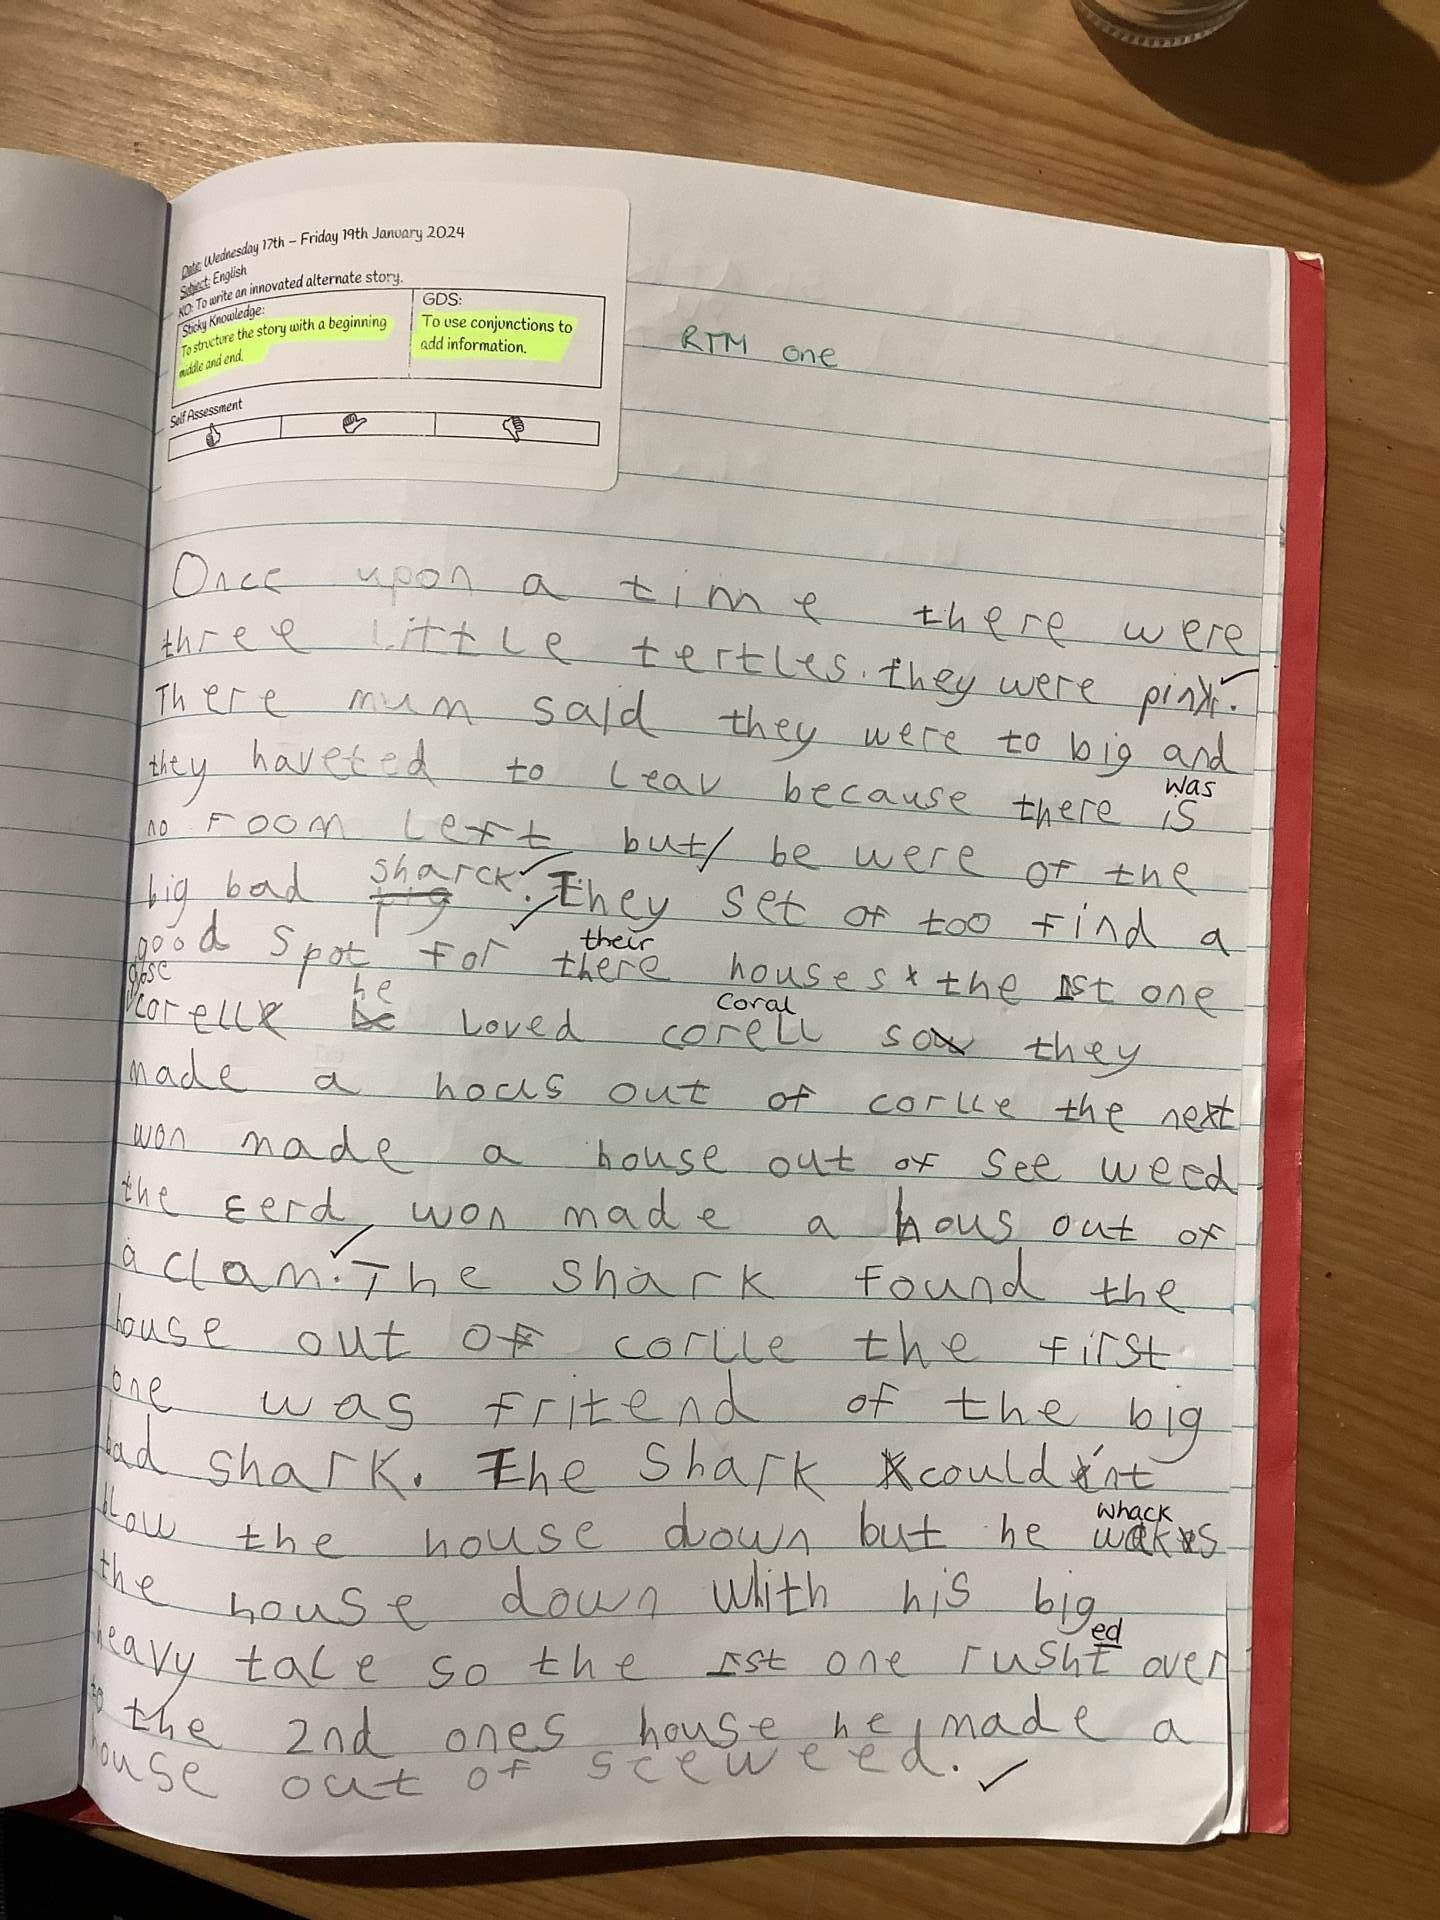 Date: Wednesday 17th – Friday 19th January 2024
Subject: English
KO: To write an innovated alternate story.
Sticky Knowledge:
To structure the story with a beginning
middle and end.
GDS:
To use conjunctions to
add information.
Self Assessment
RTM one
Once upon a time there were
three little tertles. they were pink.
There mum said they were to big and
they haveted to leav because there is
was
no room left but be were of the
big bad sharck. They set of too find a
good spot for there houses the 1st one
their
corell he loved corell so they
coral
made a hous out of corlle the next
won made a house out of see weed
the eerd won made a hous out of
a clam. The shark found the
house out of corlle the first
one was fritend of the big
bad shark. The shark could'nt
blow the house down but he
whack
the house down whith his big
heavy tale so the 1st one rusht over
ed
to the 2nd ones house he made a
house out of seeweed.